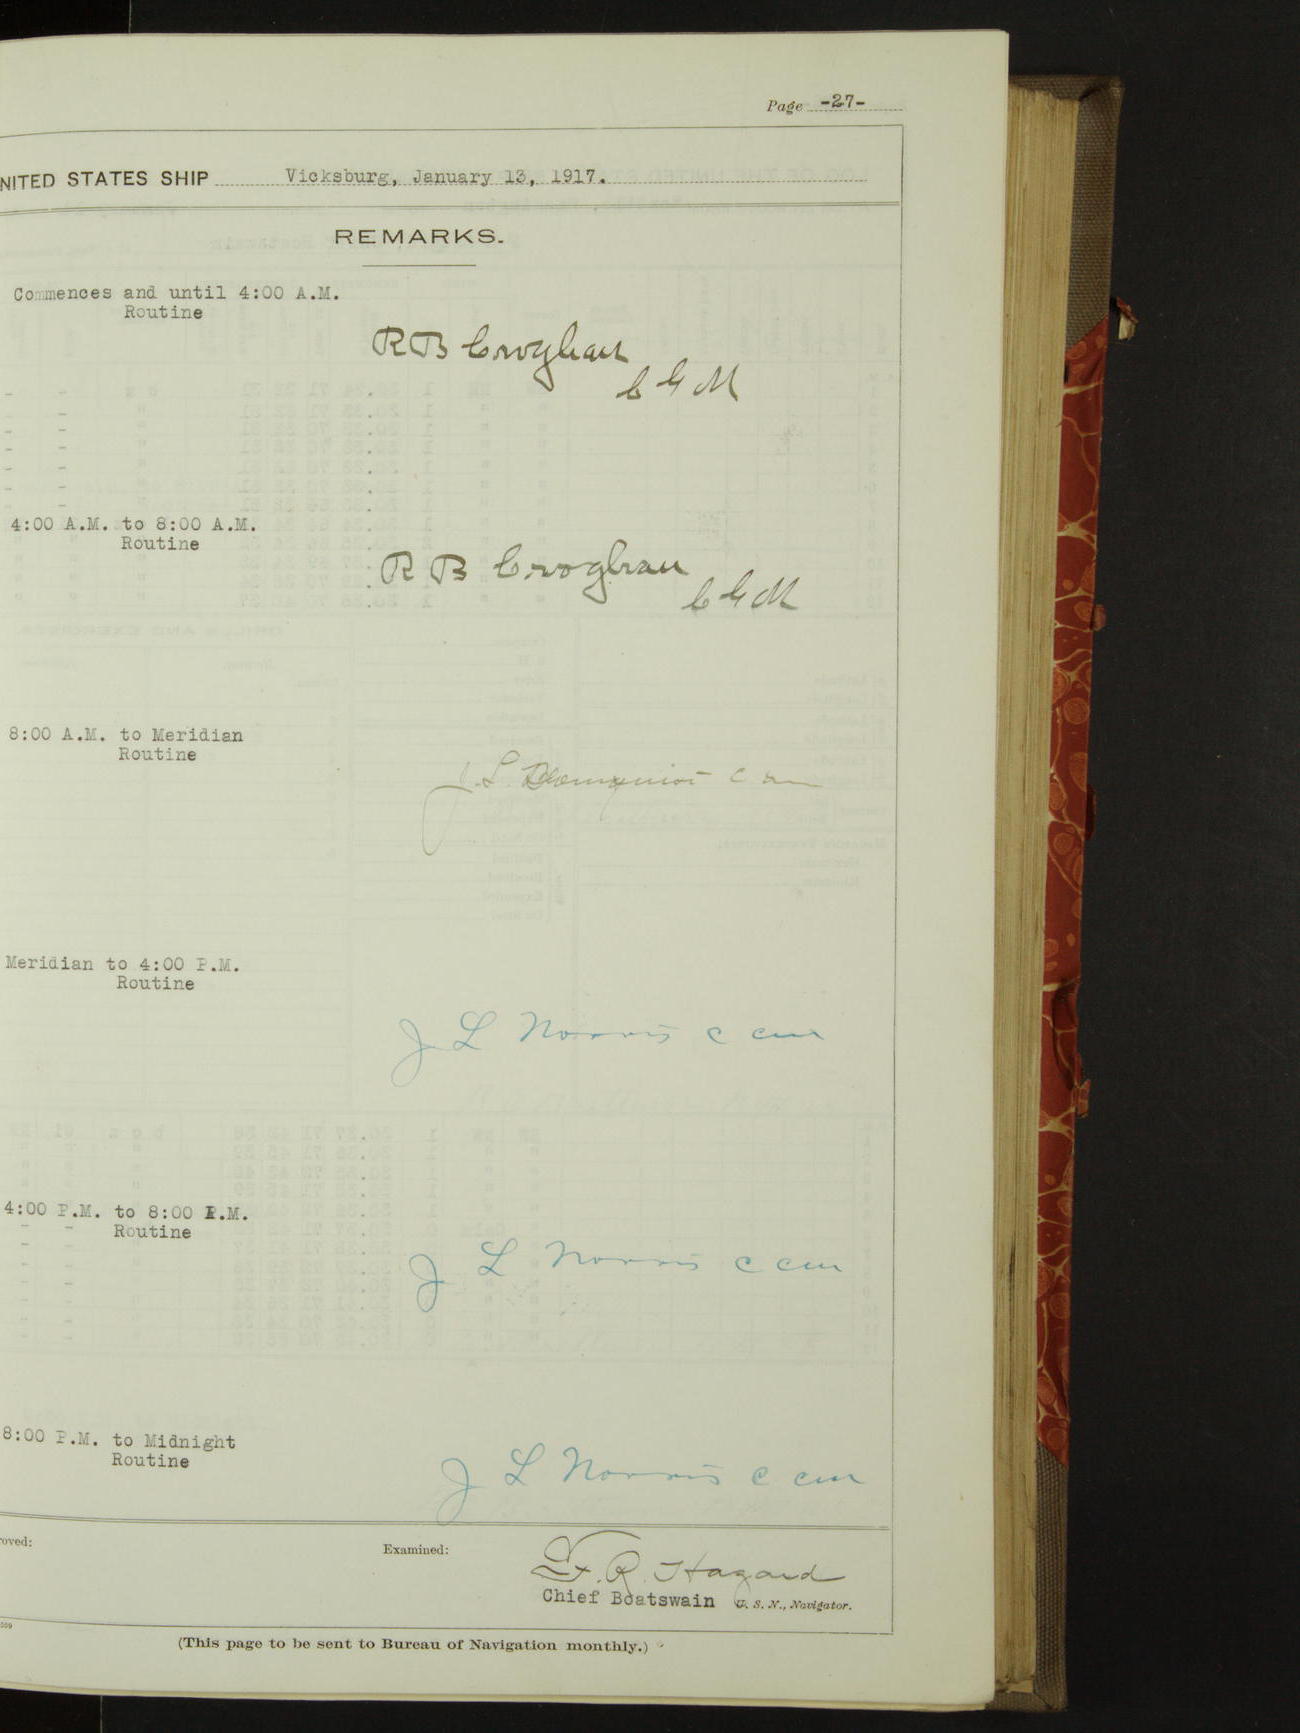 Page -27-
NITED STATES SHIP Vicksburg, January 13, 1917.
REMARKS.
Commences and until 4:00 A.M.
Routine
R B Croghan
C G M
4:00 A.M. to 8:00 A.M.
Routine
R B Croghan
C G M
8:00 A.M. to Meridian
Routine
J. L.
Meridian to 4:00 P.M.
Routine
J L Norris C CM
4:00 P.M. to 8:00 P.M.
Routine
J L Norris C CM
8:00 P.M. to Midnight
Routine
J L Norris C CM
roved:
Examined:
F. R. Hazard
Chief Boatswain U. S. N., Navigator.
(This page to be sent to Bureau of Navigation monthly.)